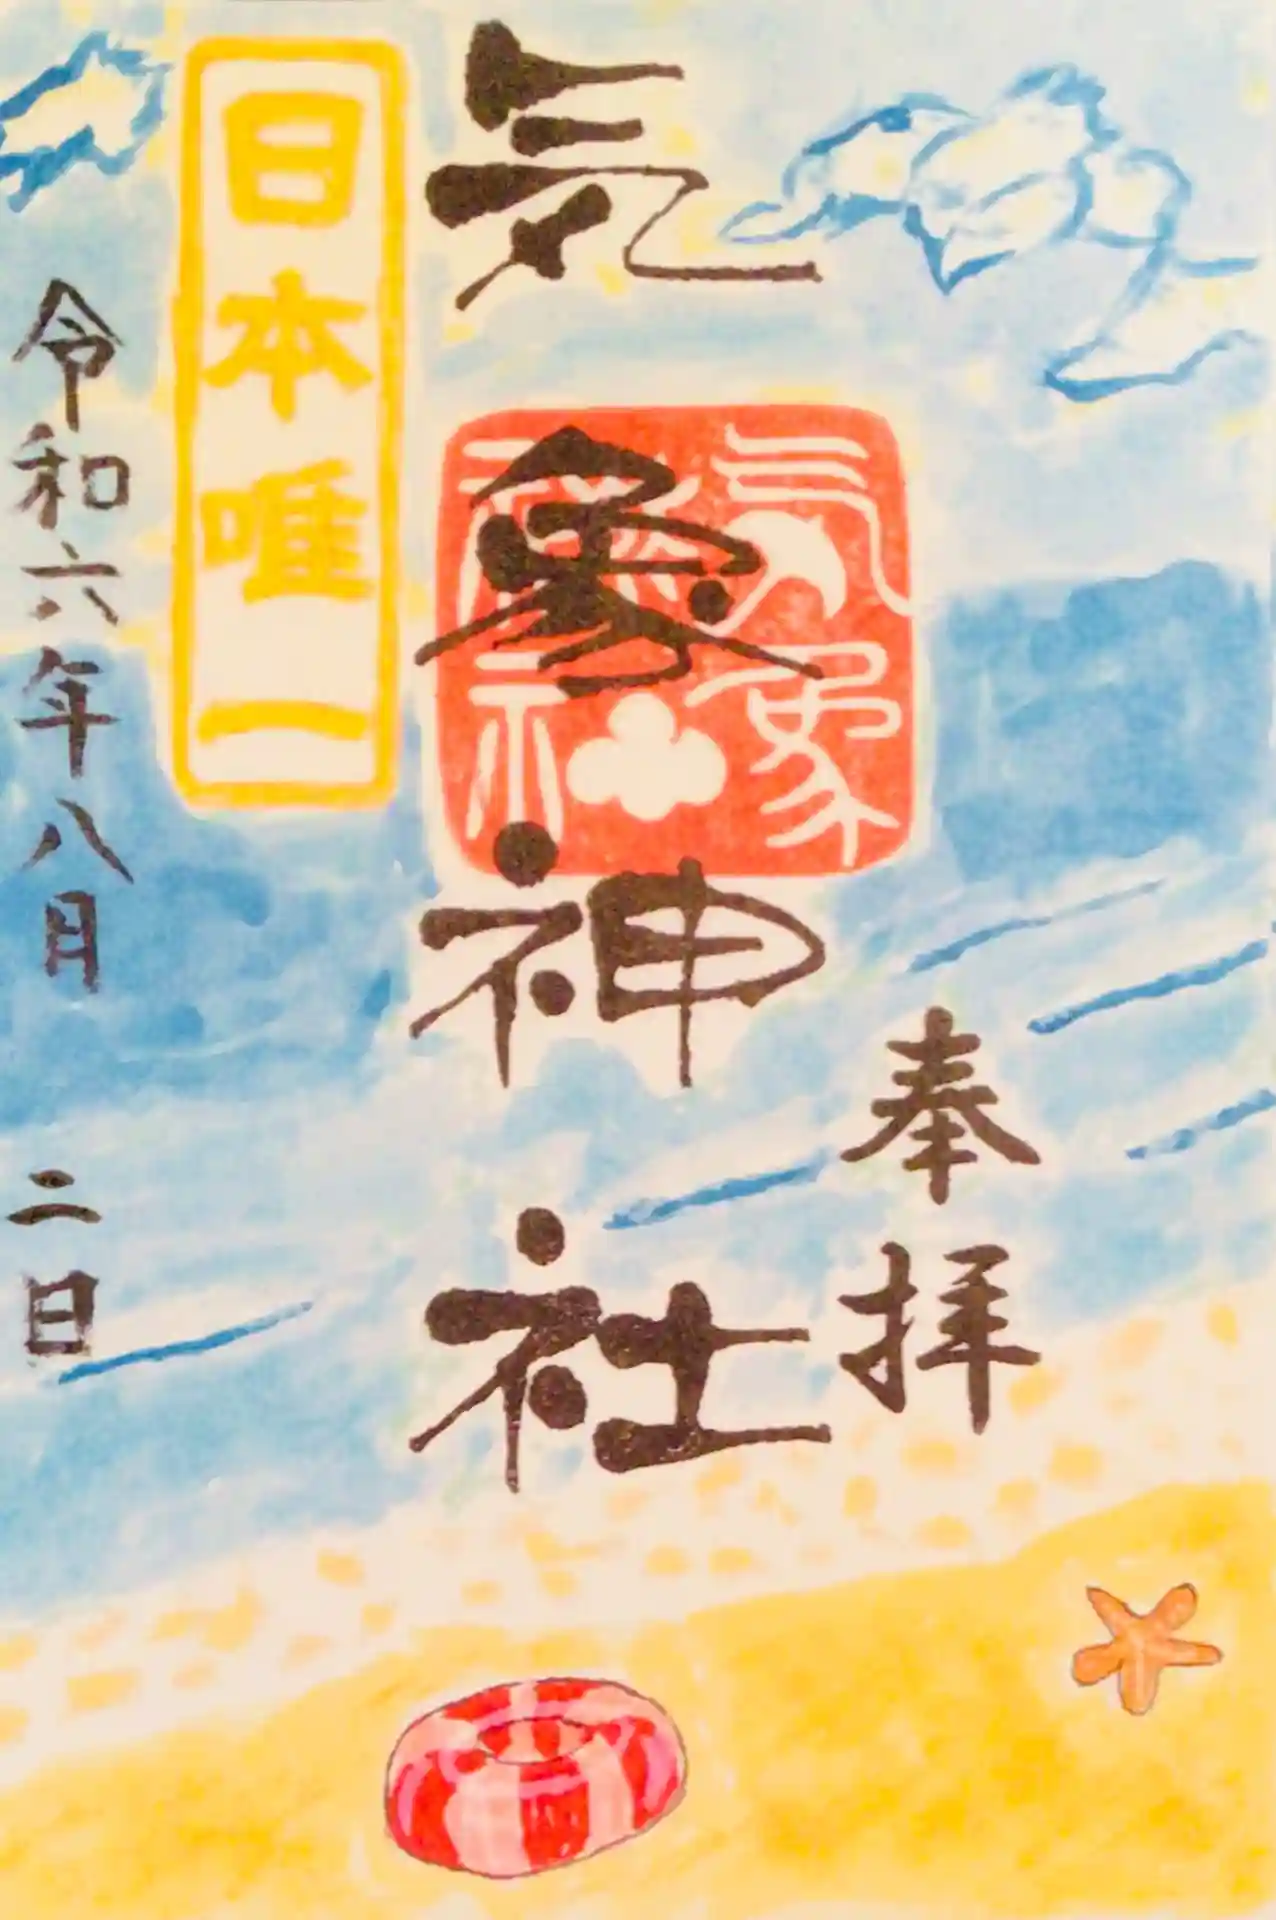 奉拝
気象神社
気象神社
日本唯一
令和六年八月二日